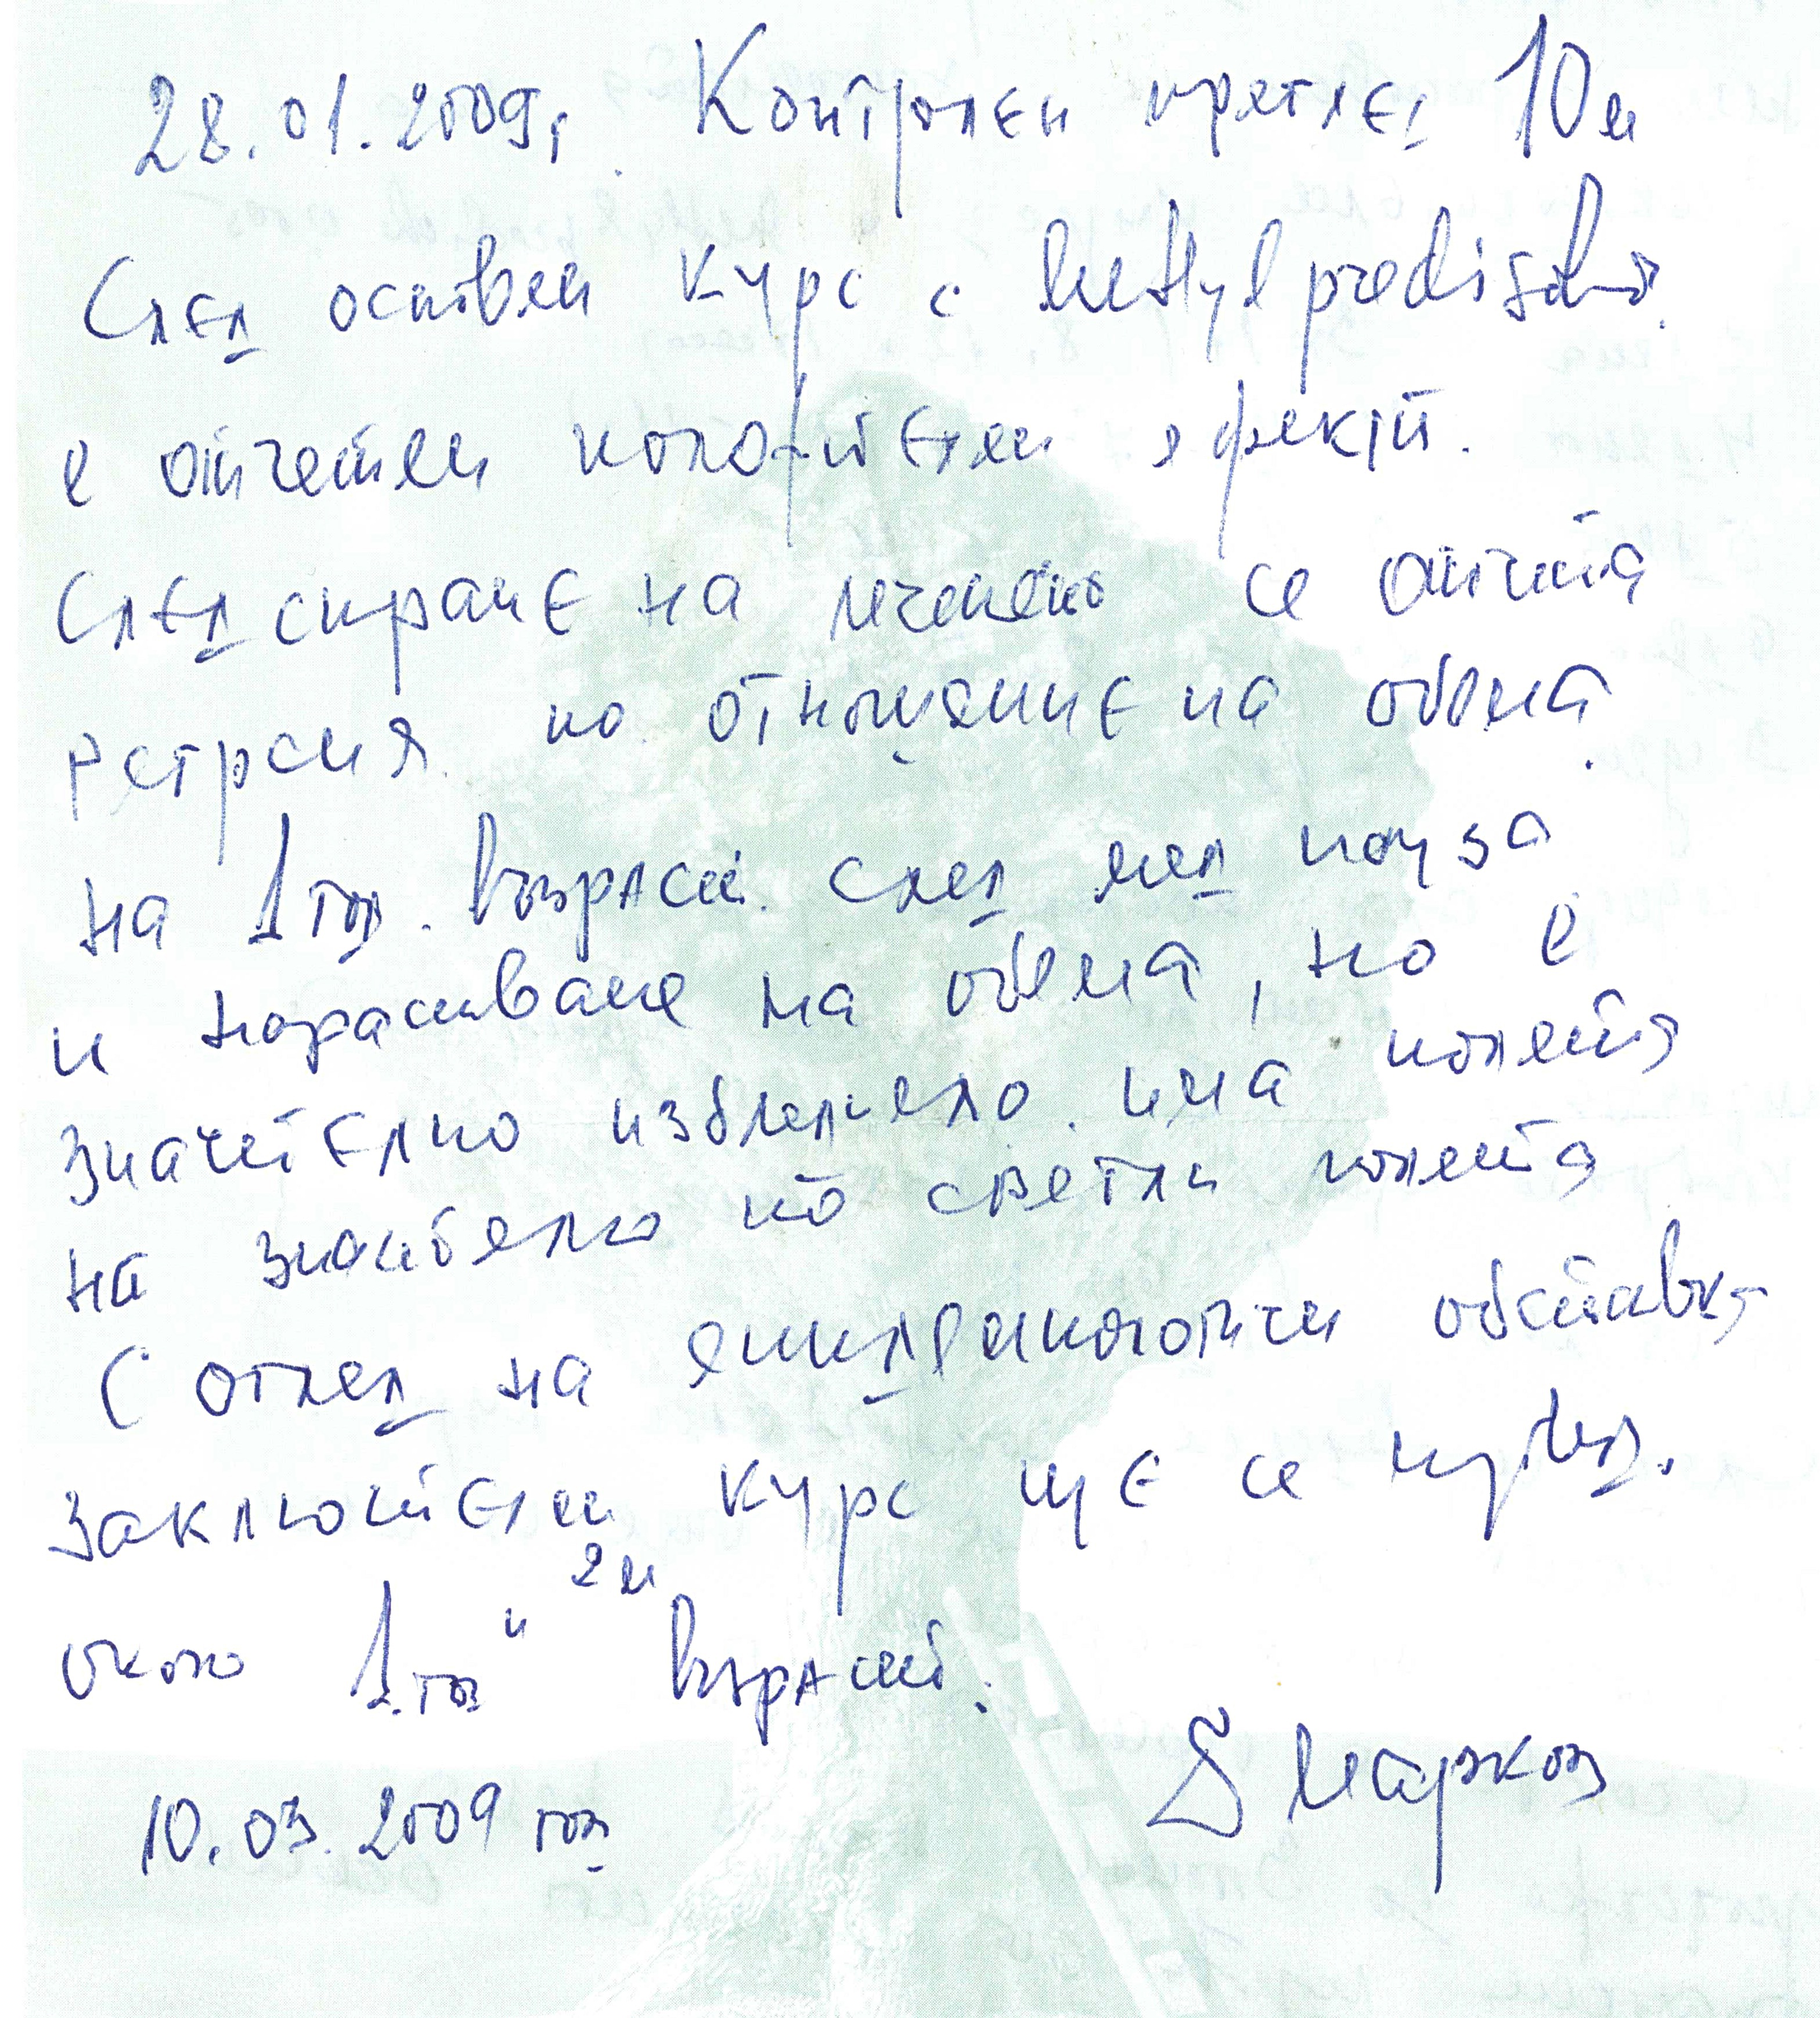 28.01.2009г. Контролен преглед 10м
След основен курс с Methylprednisolon
е отчетен положителен ефект.
След спиране на лечението се отчита
регресия по отношение на обема
на 1 год. възраст. След мед пауза
и нарастване на обема, но е
значително избледняло има полета
на значително по светли полета
С оглед на епидемиологични обстановка
заключителен курс ще се проведе.
около 1 год и 2м възраст.
10.03.2009 год Д Марков